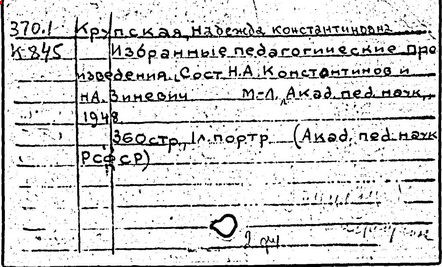 370.1 Крупская, Надежда константиновна
К845 Избранные педагогические про
изведения. Сост. Н.А. Константинов и
Н.А. Зиневич М-Л, Акад. пед. наук,
1948
360 стр., 1 л. портр (Акад. пед. наук
РСФСР)